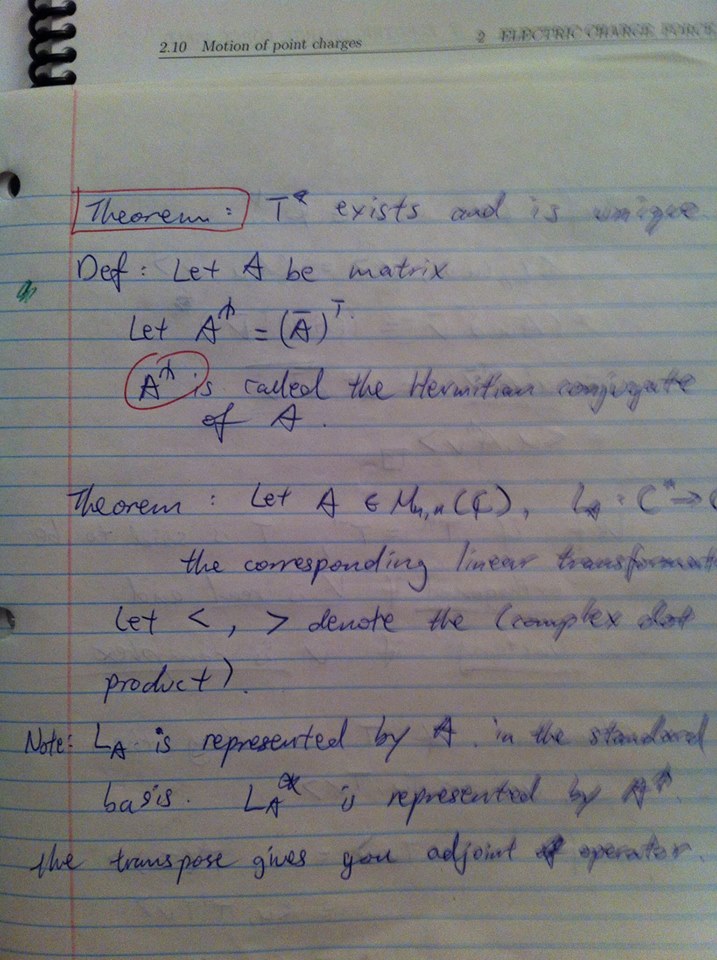 2.10 Motion of point charges 2 ELECTRIC CHARGE, FORCE
Theorem: T* exists and is unique
Def: Let A be matrix
Let A^* = (Ā)^T.
A^* is called the Hermitian conjugate
of A.
Theorem: Let A ∈ M_{n,n}(ℂ), L_A : C^n → C
the corresponding linear transformat
Let < , > denote the (complex dot
product).
Note: L_A is represented by A in the standard
basis. L_A^* is represented by A^*.
the transpose gives you adjoint operator.